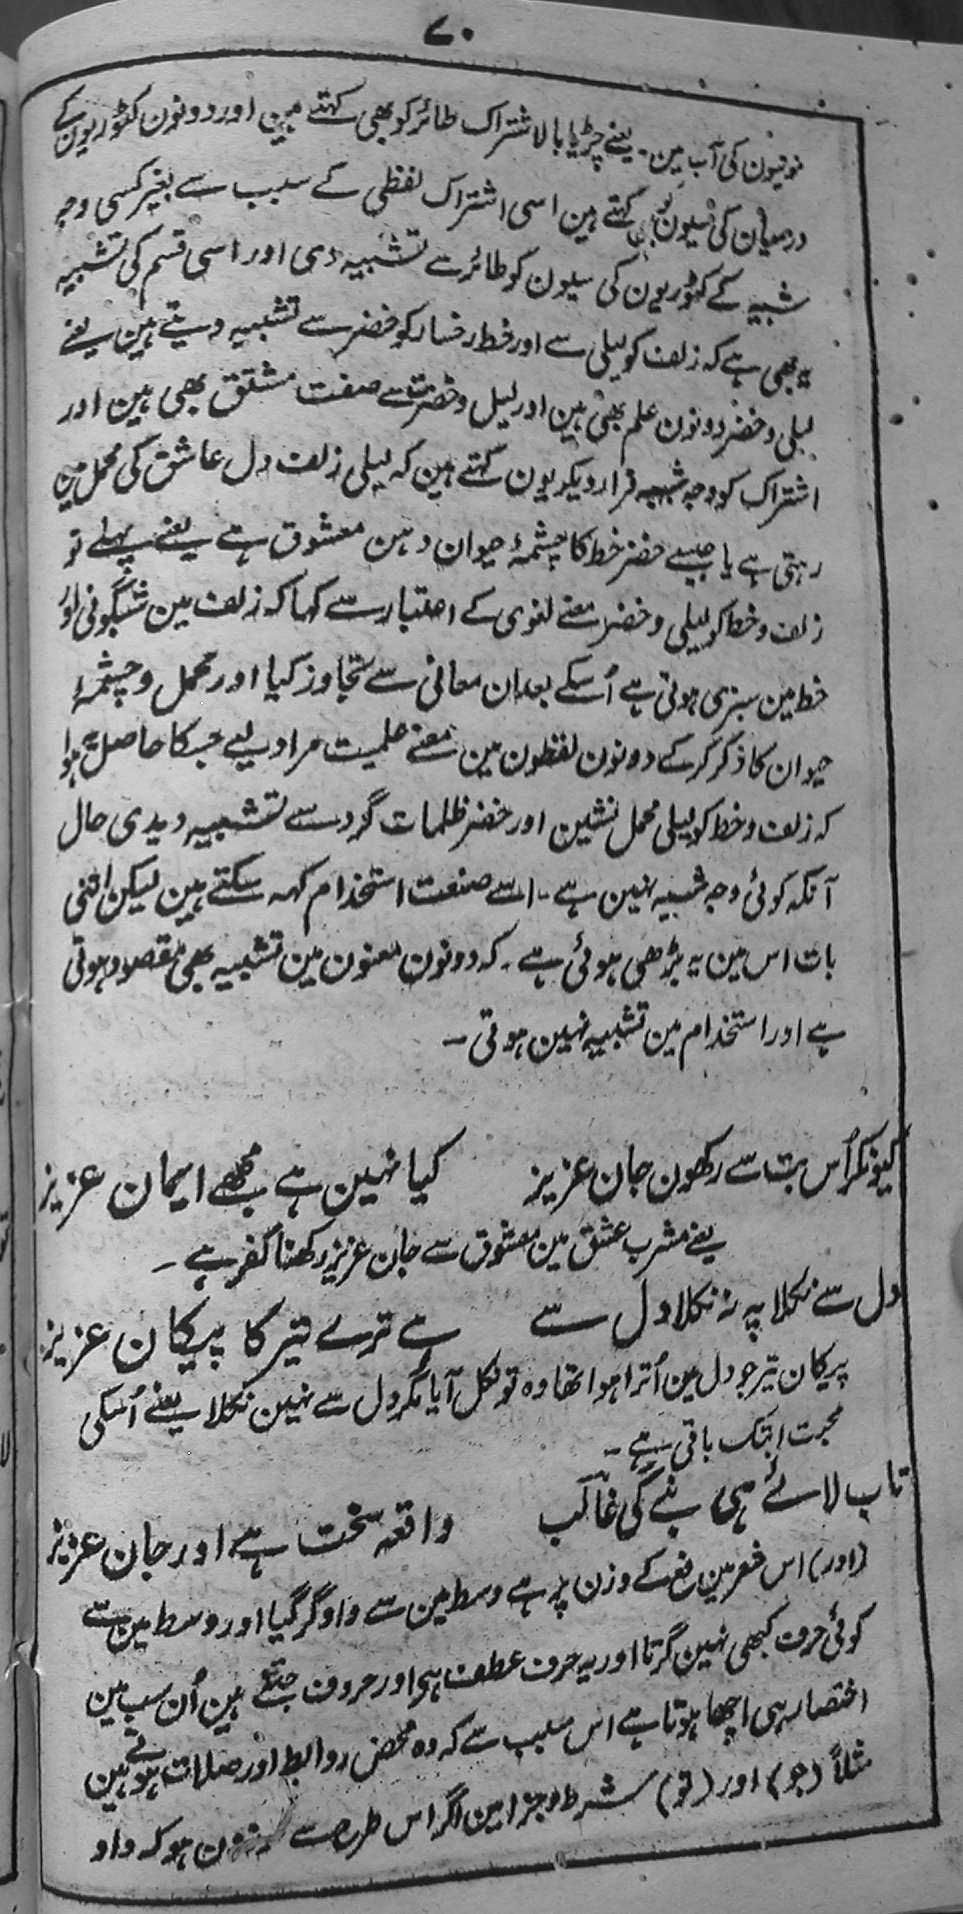 ۷۰
خوفیون کی آب مین۔ یعنے چڑیا بالاشتراک طائر کو بھی کہتے ہین اور دونون کٹوریون کے
درمیان کی سیون کو بھی کہتے ہین اسی اشتراک لفظی کے سبب سے بغیر کسی وجہ
شبیہ کے کٹوریون کی سیون کو طائر سے تشبیہ دی اور اسی قسم کی تشبیہ
یہ بھی ہے کہ زلف کو لیلی سے اور خط رخسار کو خضر سے تشبیہ دیتے ہین یعنے
لیلی و خضر دونون علم بھی ہین اور لیل و خضرت سے صفت مشتق بھی ہین اور
اشتراک کو وجہ شبہہ قرار دیکر یون کہتے ہین کہ لیلی زلف دل عاشق کی محمل مین
رہتی ہے یا جیسے خضر خط کا چشمۂ حیوان دہن معشوق ہے یعنے پہلے تو
زلف و خط کو لیلی و خضر معنے لغوی کے اعتبار سے کہا کہ زلف مین شبگونی اور
خط مین سبزی ہوتی ہے اُسکے بعد ان معانی سے تجاوز کیا اور محمل و چشمۂ
حیوان کا ذکر کر کے دونون لفظون مین معنے علمیت مراد لیے جسکا حاصل یہ ہوا
کہ زلف و خط کو لیلی محمل نشین اور خضر ظلمات گرد سے تشبیہ دیدی حال
آنکہ کوئی وجہ شبیہ نہین ہے۔ اسے صنعت استخدام کہہ سکتے ہین لیکن اتنی
بات اس مین یہ بڑھی ہوئی ہے۔ کہ دونون معنون مین تشبیہ بھی مقصود ہوتی
ہے اور استخدام مین تشبیہ نہین ہوتی۔
کیونکر اُس بت سے رکھون جان عزیز کیا نہین ہے مجھے ایمان عزیز
یعنے مشرب عشق مین معشوق سے جان عزیز رکھنا کفر ہے۔
دل سے نکلا پہ نہ نکلا دل سے ہے ترے تیر کا پیکان عزیز
پیکان تیر جو دل مین اُترا ہوا تھا وہ تو نکل آیا مگر دل سے نہین نکلا یعنے اُسکی
محبت ابتک باقی ہے۔
تاب لائے ہی بنے گی غالب واقعہ سخت ہے اور جان عزیز
(اور) اس شعر مین فع کے وزن پر ہے وسط مین سے واو گر گیا اور وسط مین سے
کوئی حرف کبھی نہین گرتا اور یہ حرف عطف ہی اور حروف جتنے ہین اُن سب مین
اختصار ہی اچھا ہوتا ہے اس سبب سے کہ وہ محض روابط اور صلات ہوتے ہین
مثلاً (جو) اور (تو) شرط و جزا مین اگر اس طرح سے ہون ہو کہ واو